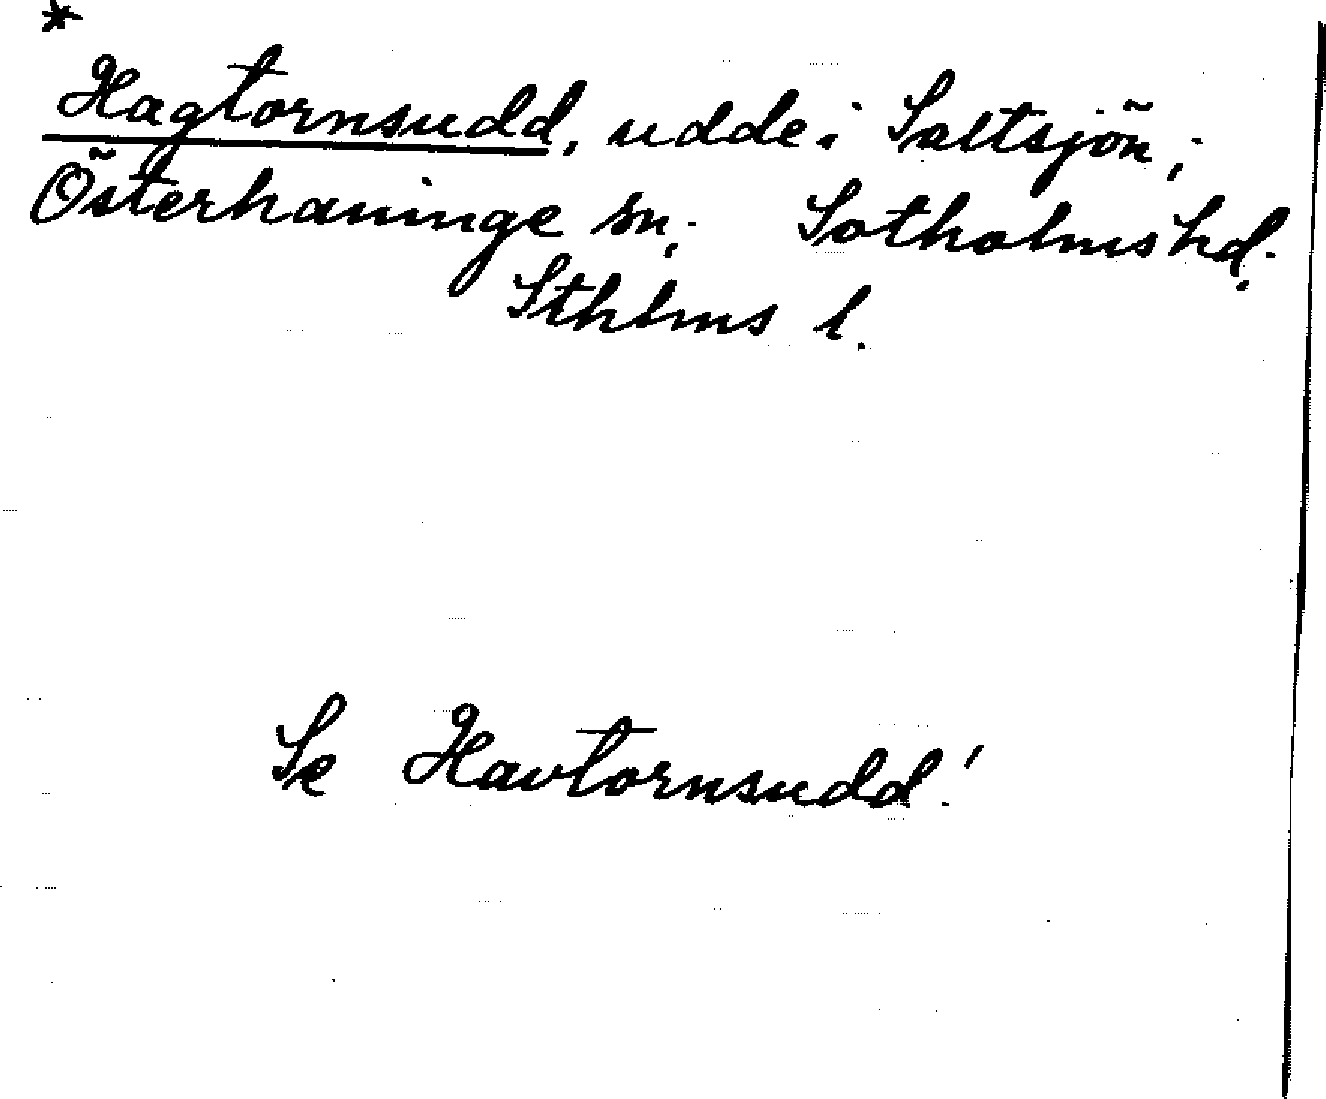 *
Hagtornsudd, udde i Saltsjön;
Österhaninge sn; Sotholms hd;
Sthlms l.
Se Havtornsudd!